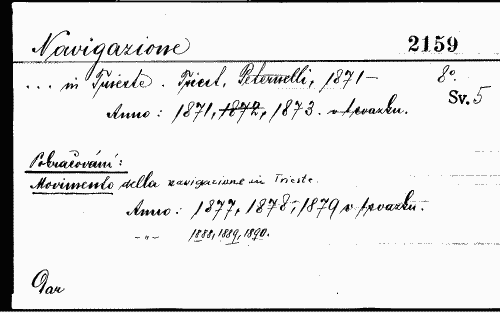 Navigazione 2159
... in Trieste. Triest, Peternelli, 1871– 8°.
Sv. 5
Anno: 1871, 1872, 1873. v 1 svazku.
Pokračování:
Movimento della navigazione in Trieste.
Anno: 1877, 1878, 1879 v 1 svazku.
-„- 1888, 1889, 1890.
Dar